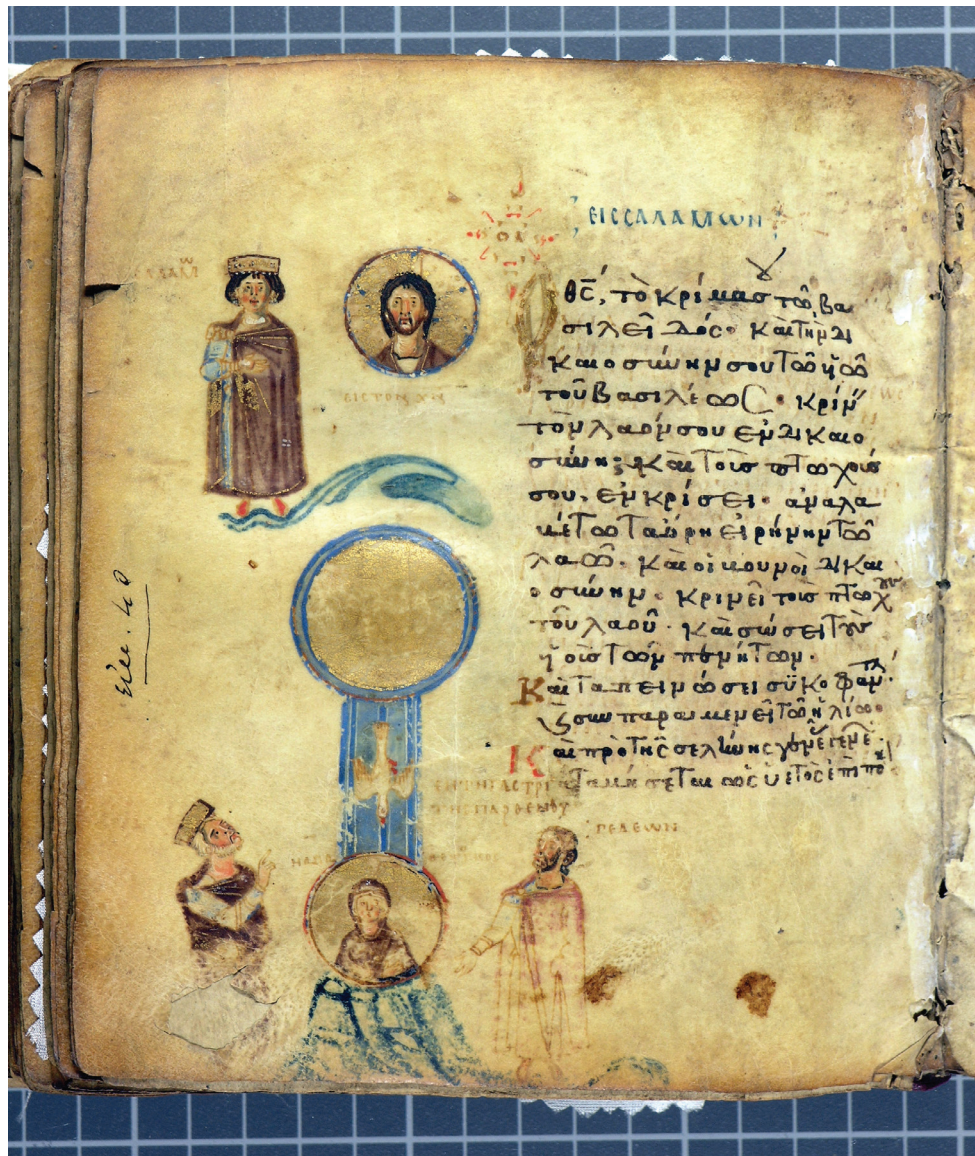 ΕΙССΑΛΑΜѠΝ
ΟΑ
θ̅ς̅, τὸ κρίμα σου τῶ βα
σιλεῖ δός· καὶ τὴν δι
καιοσύνην σου τῶ υἱῶ
τοῦ βασιλέως· κρίν
τὸν λαόν σου ἐν δικαιο
σύνη· καὶ τοὺς πτωχούς
σου, ἐν κρίσει· ἀναλα
βέτω τὰ ὄρη εἰρήνην τῶ
λαῶ· καὶ οἱ βουνοὶ δικαι
οσύνην· κρινεῖ τοὺς πτωχ
τοῦ λαοῦ· καὶ σώσει τοὺς
υἱοὺς τῶν πενήτων·
Καὶ ταπεινώσει συκοφάντ
συμπαραμενεῖ τῶ ἡλίω
Καὶ πρὸ τῆς σελήνης
καταβήσεται ὡς ὑετὸς ἐπὶ πο
ΕΙС ΤΟΝ Χ̅Ν̅
ΤΗС ΠΑΡΘΕΝΟΥ
ΓΕΔΕѠΝ